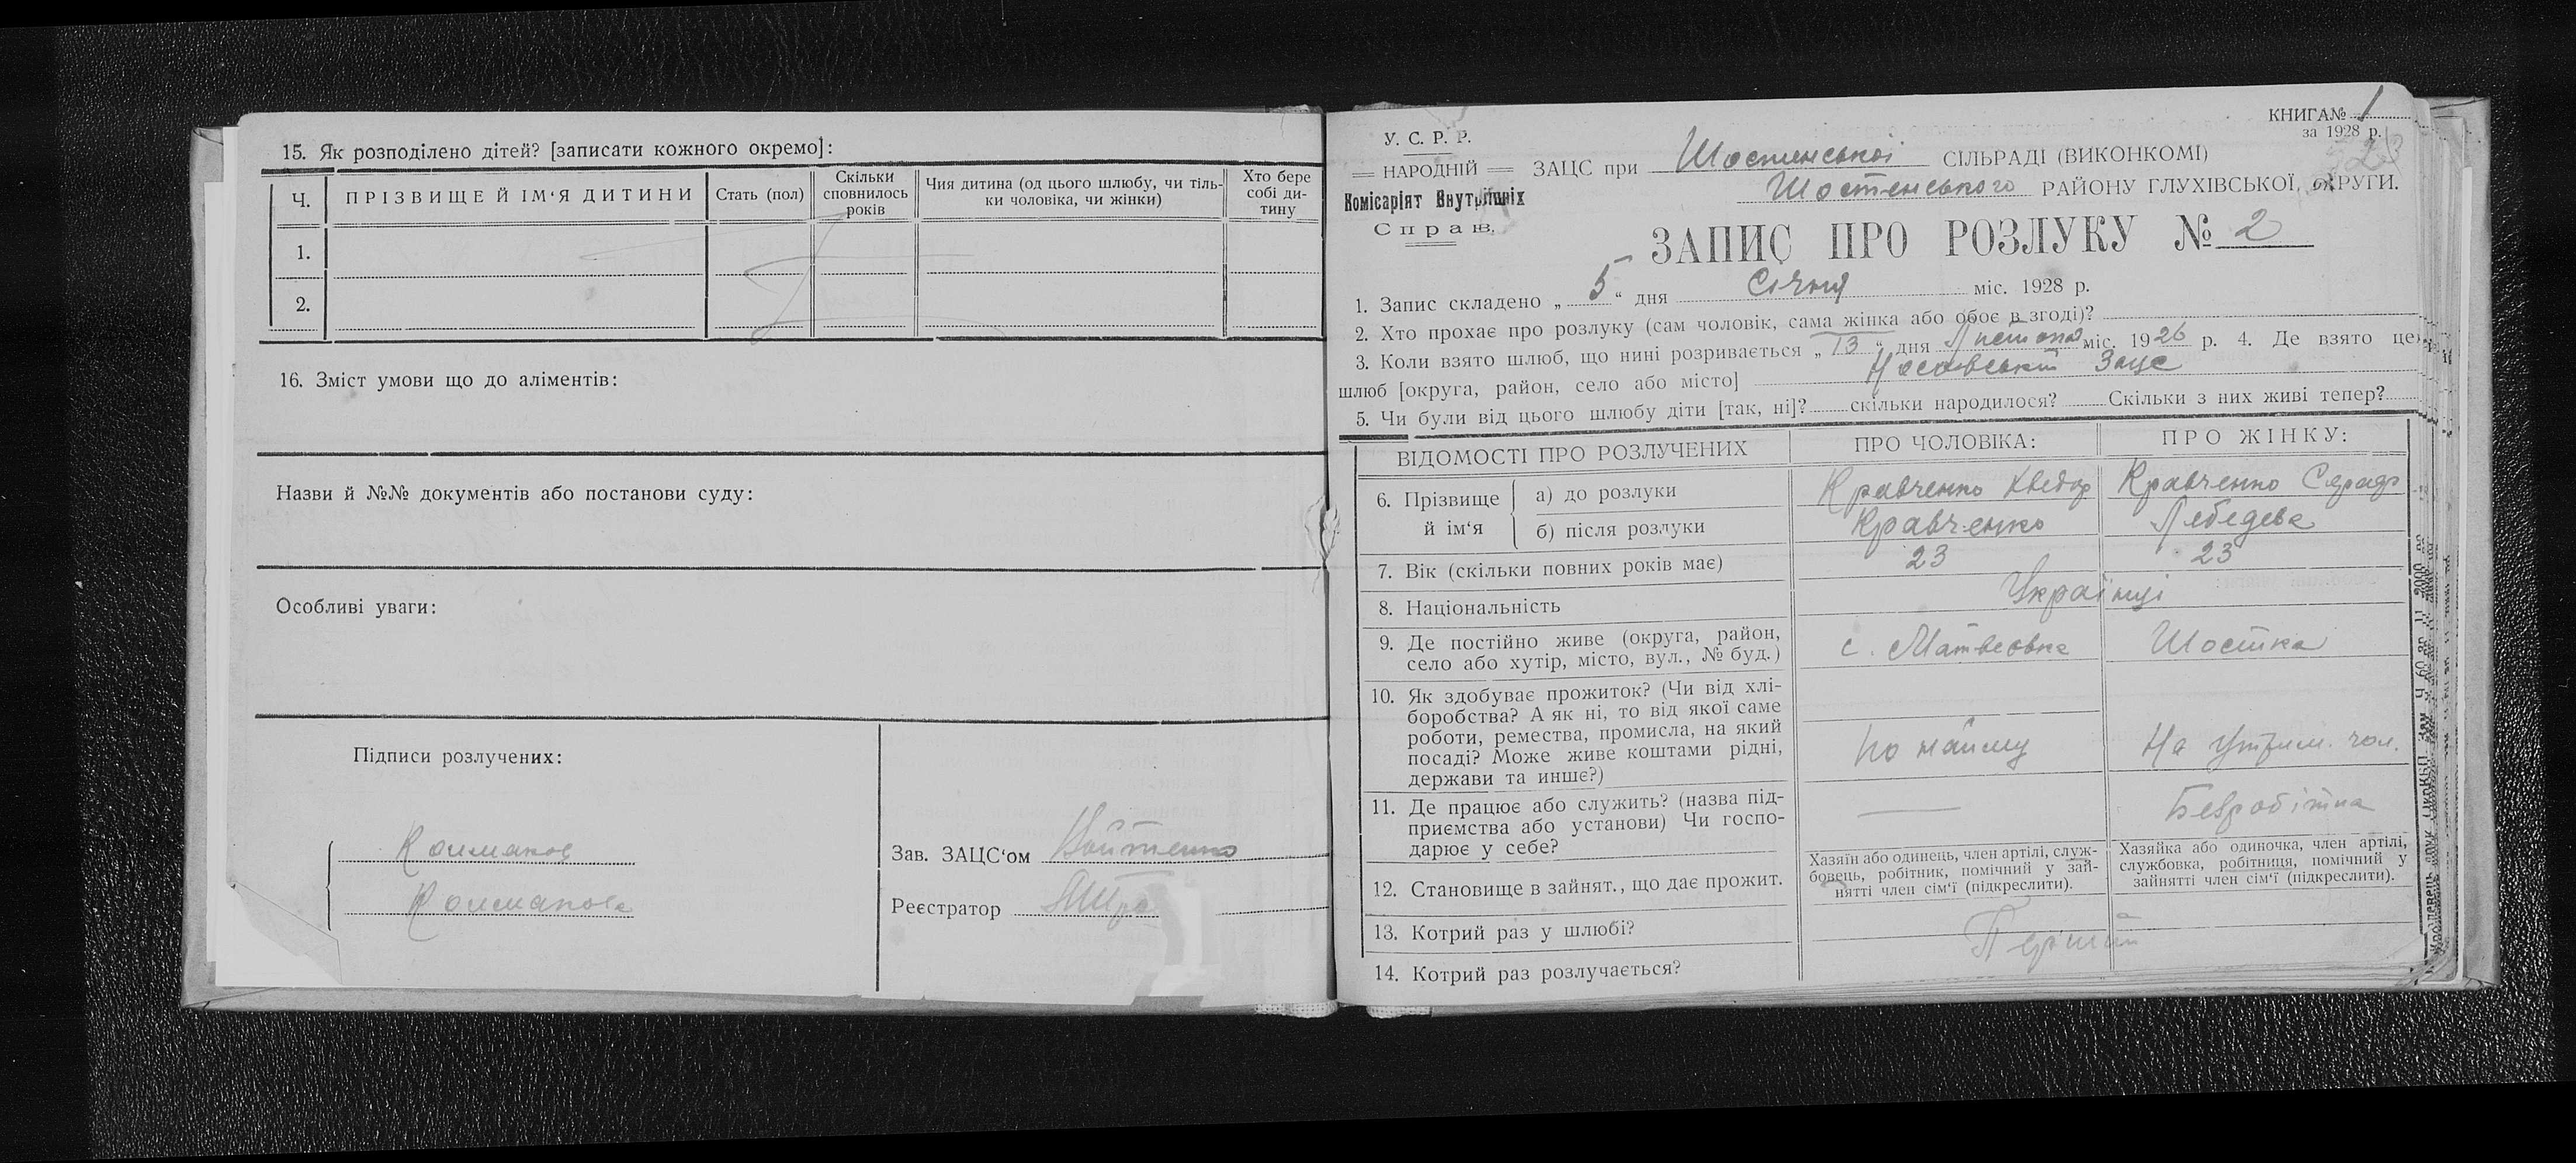 15. Як розподілено дітей? [записати кожного окремо]:
Ч. ПРІЗВИЩЕ Й ІМ‘Я ДИТИНИ Стать (пол) Скільки сповнилось років Чия дитина (од цього шлюбу, чи тіль-ки чоловіка, чи жінки) Хто бере собі ди-тину
1.
2.
16. Зміст умови що до аліментів:
Назви й №№ документів або постанови суду:
Особливі уваги:
Підписи розлучених:
Зав. ЗАЦС‘ом Войтенко
Реєстратор
КНИГА № 1
за 1928 р.
У. С. Р. Р.
НАРОДНІЙ
Комісаріят Внутрішніх
Справ.
ЗАЦС при Шостенської СІЛЬРАДІ (ВИКОНКОМІ)
Шостенського РАЙОНУ ГЛУХІВСЬКОЇ ОКРУГИ.
ЗАПИС ПРО РОЗЛУКУ № 2
1. Запис складено „ 5 “ дня Січня міс. 1928 р.
2. Хто прохає про розлуку (сам чоловік, сама жінка або обоє в згоді)?
3. Коли взято шлюб, що нині розривається „ 13 “ дня Листопа міс. 1926 р. 4. Де взято цей
шлюб [округа, район, село або місто] Зацс
5. Чи були від цього шлюбу діти [так, ні]? скільки народилося? Скільки з них живі тепер?
ВІДОМОСТІ ПРО РОЗЛУЧЕНИХ ПРО ЧОЛОВІКА: ПРО ЖІНКУ:
6. Прізвище й ім‘я
а) до розлуки Кравченко Хведор Кравченко
б) після розлуки Кравченко Лебедєва
7. Вік (скільки повних років має) 23 23
8. Національність Українці
9. Де постійно живе (округа, район,
село або хутір, місто, вул., № буд.) с. Матвеовка Шостка
10. Як здобуває прожиток? (Чи від хлі-
боробства? А як ні, то від якої саме
роботи, ремества, промисла, на який
посаді? Може живе коштами рідні,
держави та инше?) по найму На утрим. чол.
11. Де працює або служить? (назва під-
приємства або установи) Чи госпо-
дарює у себе? — Безробітна
12. Становище в зайнят., що дає прожит.
Хазяїн або одинець, член артілі, служ-
бовець, робітник, помічний у зай-
нятті член сім‘ї (підкреслити).
Хазяйка або одиночка, член артілі,
службовка, робітниця, помічний у
зайнятті член сім‘ї (підкреслити).
13. Котрий раз у шлюбі? Перший
14. Котрий раз розлучається?